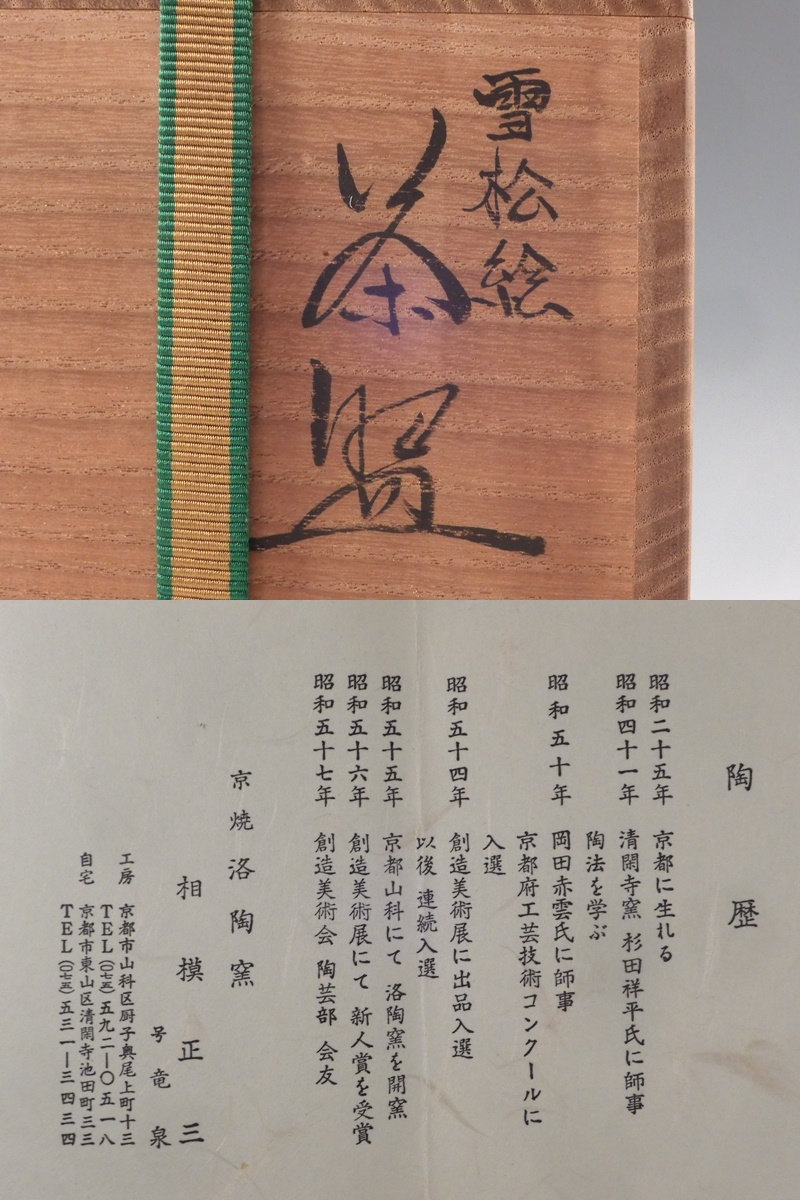 雪松絵
茶盌
陶歴
昭和二十五年 京都に生れる
昭和四十一年 清閑寺窯 杉田祥平氏に師事
陶法を学ぶ
昭和五十年 岡田赤雲氏に師事
京都府工芸技術コンクールに
入選
昭和五十四年 創造美術展に出品入選
以後 連続入選
昭和五十五年 京都山科にて 洛陶窯を開窯
昭和五十六年 創造美術展にて 新人賞を受賞
昭和五十七年 創造美術会 陶芸部 会友
京焼 洛陶窯
相模正三
号 竜泉
工房 京都市山科区厨子奥尾上町十三
TEL(〇七五)五九二ー〇五一八
自宅 京都市東山区清閑寺池田町三三
TEL(〇七五)五三一ー三四三四